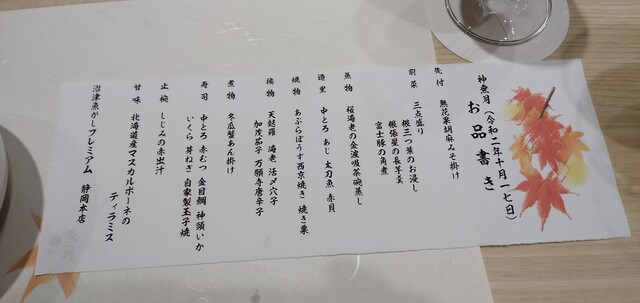 神無月(令和二年十月一七日)
お品書き
先付 無花果胡麻みそ掛け
前菜 三点盛り
根三つ葉のお浸し
銀張星の長芋羹
富士豚の角煮
蒸物 桜海老の金波吸茶碗蒸し
造里 中とろ あじ 太刀魚 赤貝
焼物 あぶらぼうず西京焼き 焼き栗
揚物 天麩羅 海老 活〆穴子
加茂茄子 万願寺唐辛子
煮物 冬瓜蟹あん掛け
寿司 中とろ 赤むつ 金目鯛 神頭いか
いくら 芽ねぎ 自家製玉子焼
止椀 しじみの赤出汁
甘味 北海道産マスカルポーネの
ティラミス
沼津魚がしプレミアム 静岡本店